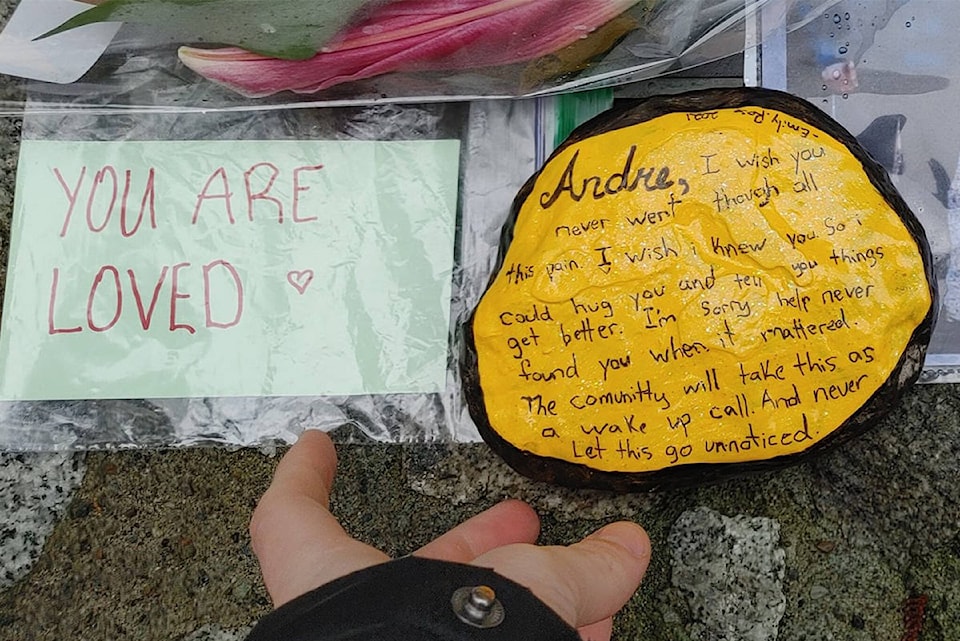 YOU ARE
LOVED ♡
Andre, I wish you
never went though all
this pain. I wish i knew you. So i
could hug you and tell you things
get better. I'm sorry help never
found you when it mattered.
The comunitty will take this as
a wake up call. And never
Let this go unnoticed.
-Emily. 2021